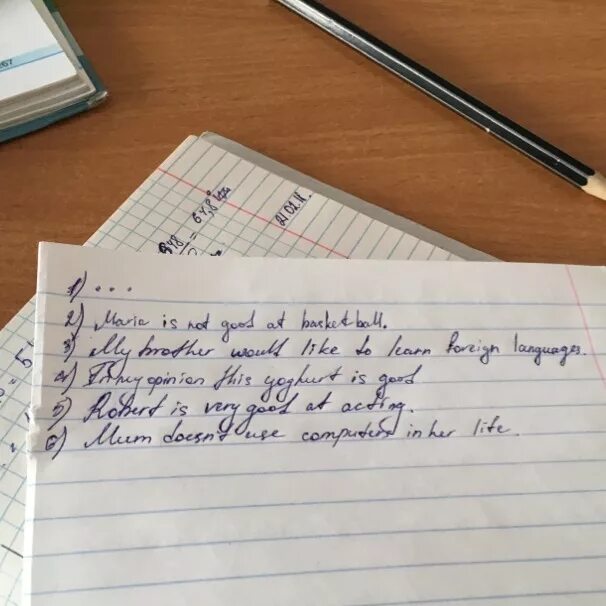 267
648 = 64,8
21.02.
1) ...
2) Maria is not good at basketball.
3) My brother would like to learn foreign languages.
4) In my opinion this yoghurt is good
5) Robert is very good at acting.
6) Mum doesn't use computers in her life.